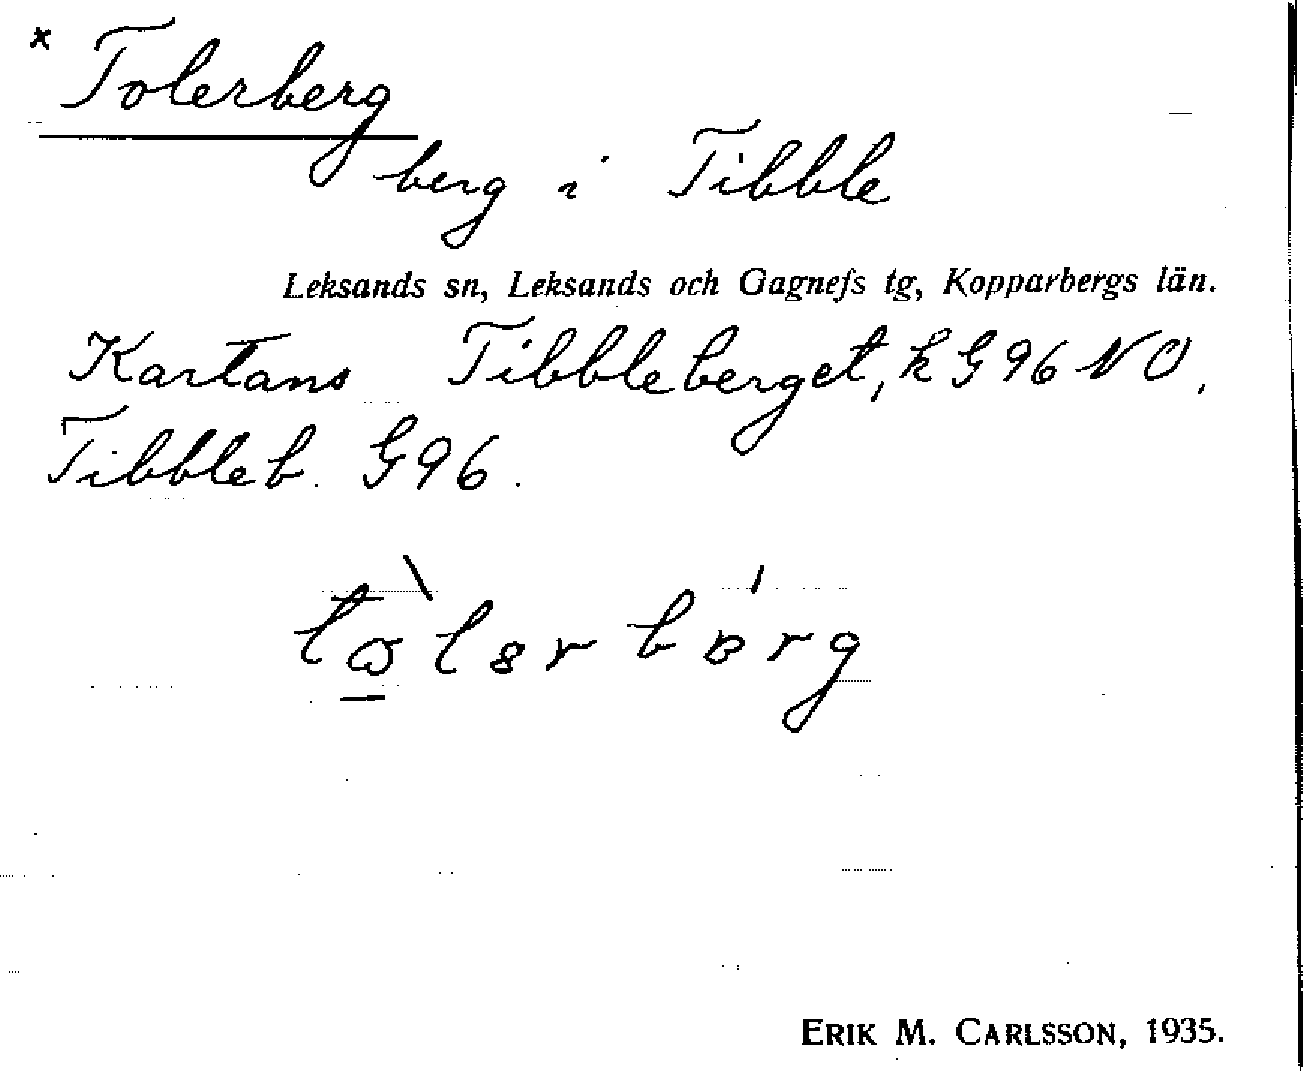 * Tolerberg
berg i Tibble
Leksands sn, Leksands och Gagnefs tg, Kopparbergs län.
Kartans Tibbleberget, k G96 NO,
Tibbleb. G96.
ERIK M. CARLSSON, 1935.